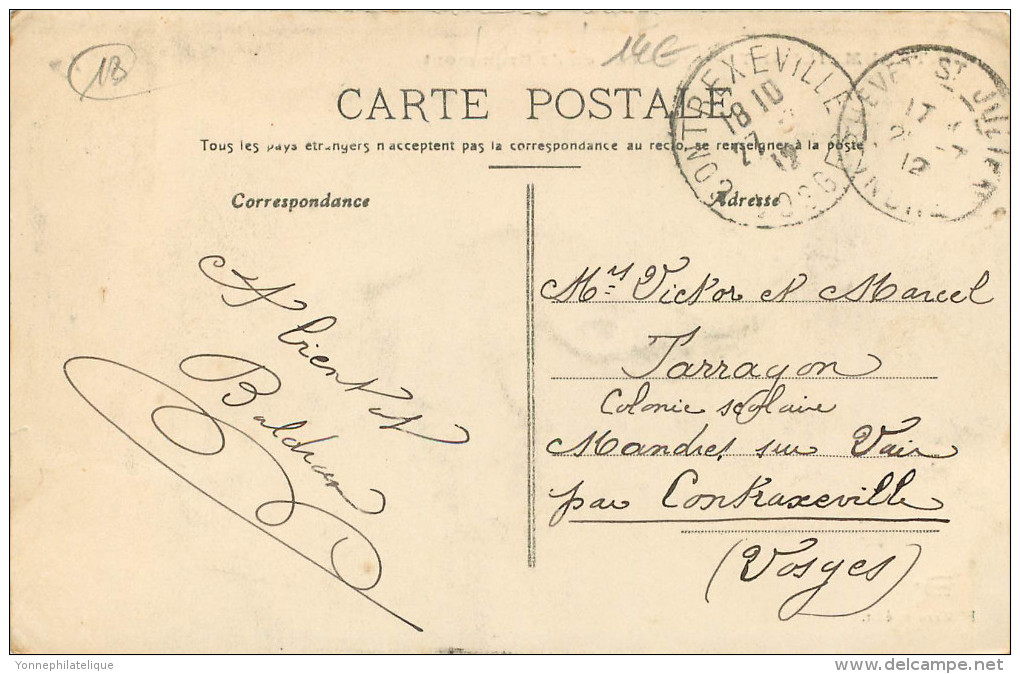 1B
14E
CONTREXEVILLE
18 10
27
12
VOSGES
ST JULIEN
17
12
YONNE
CARTE POSTALE
Tous les pays étrangers n'acceptent pas la correspondance au recto, se renseigner à la poste
Correspondance
A bientôt
Baldran
Adresse
Mrs Victor et Marcel
Tarragon
Colonie scolaire
Mandres sur Vair
par Contraxeville
(Vosges)
Yonnephilatelique
delcampe.net